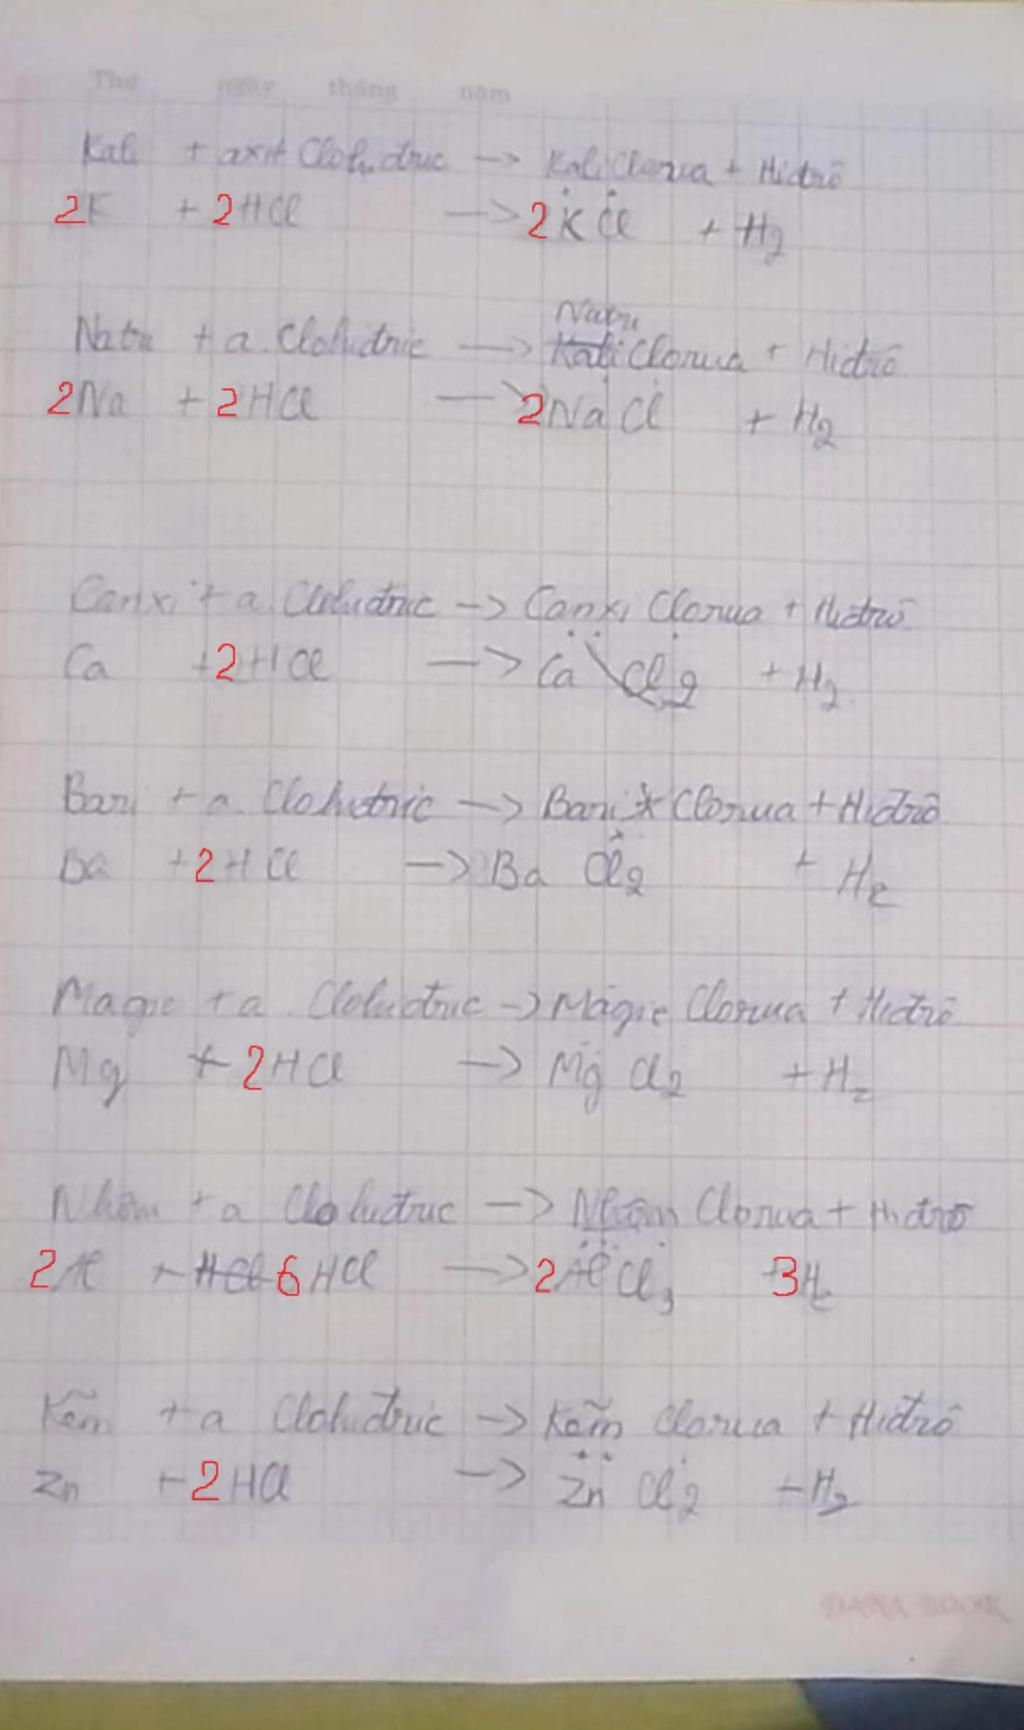 Thứ ngày tháng năm
Kali + axit Clohiđric -> Kali Clorua + Hiđrô
2K + 2HCl -> 2KCl + H2
Natri + a. Clohiđric -> Natri Kali Clorua + Hiđrô
2Na + 2HCl -> 2NaCl + H2
Canxi + a. Clohiđric -> Canxi Clorua + Hiđrô
Ca + 2HCl -> CaCl2 + H2
Bari + a Clohiđric -> Bari Clorua + Hiđrô
Ba + 2HCl -> BaCl2 + H2
Magie + a Clohiđric -> Magie Clorua + Hiđrô
Mg + 2HCl -> MgCl2 + H2
Nhôm + a Clohiđric -> Nhôm Clorua + Hiđrô
2Al + HCl 6HCl -> 2AlCl3 3H2
Kẽm + a Clohiđric -> Kẽm Clorua + Hiđrô
Zn + 2HCl -> ZnCl2 + H2
DANA BOOK